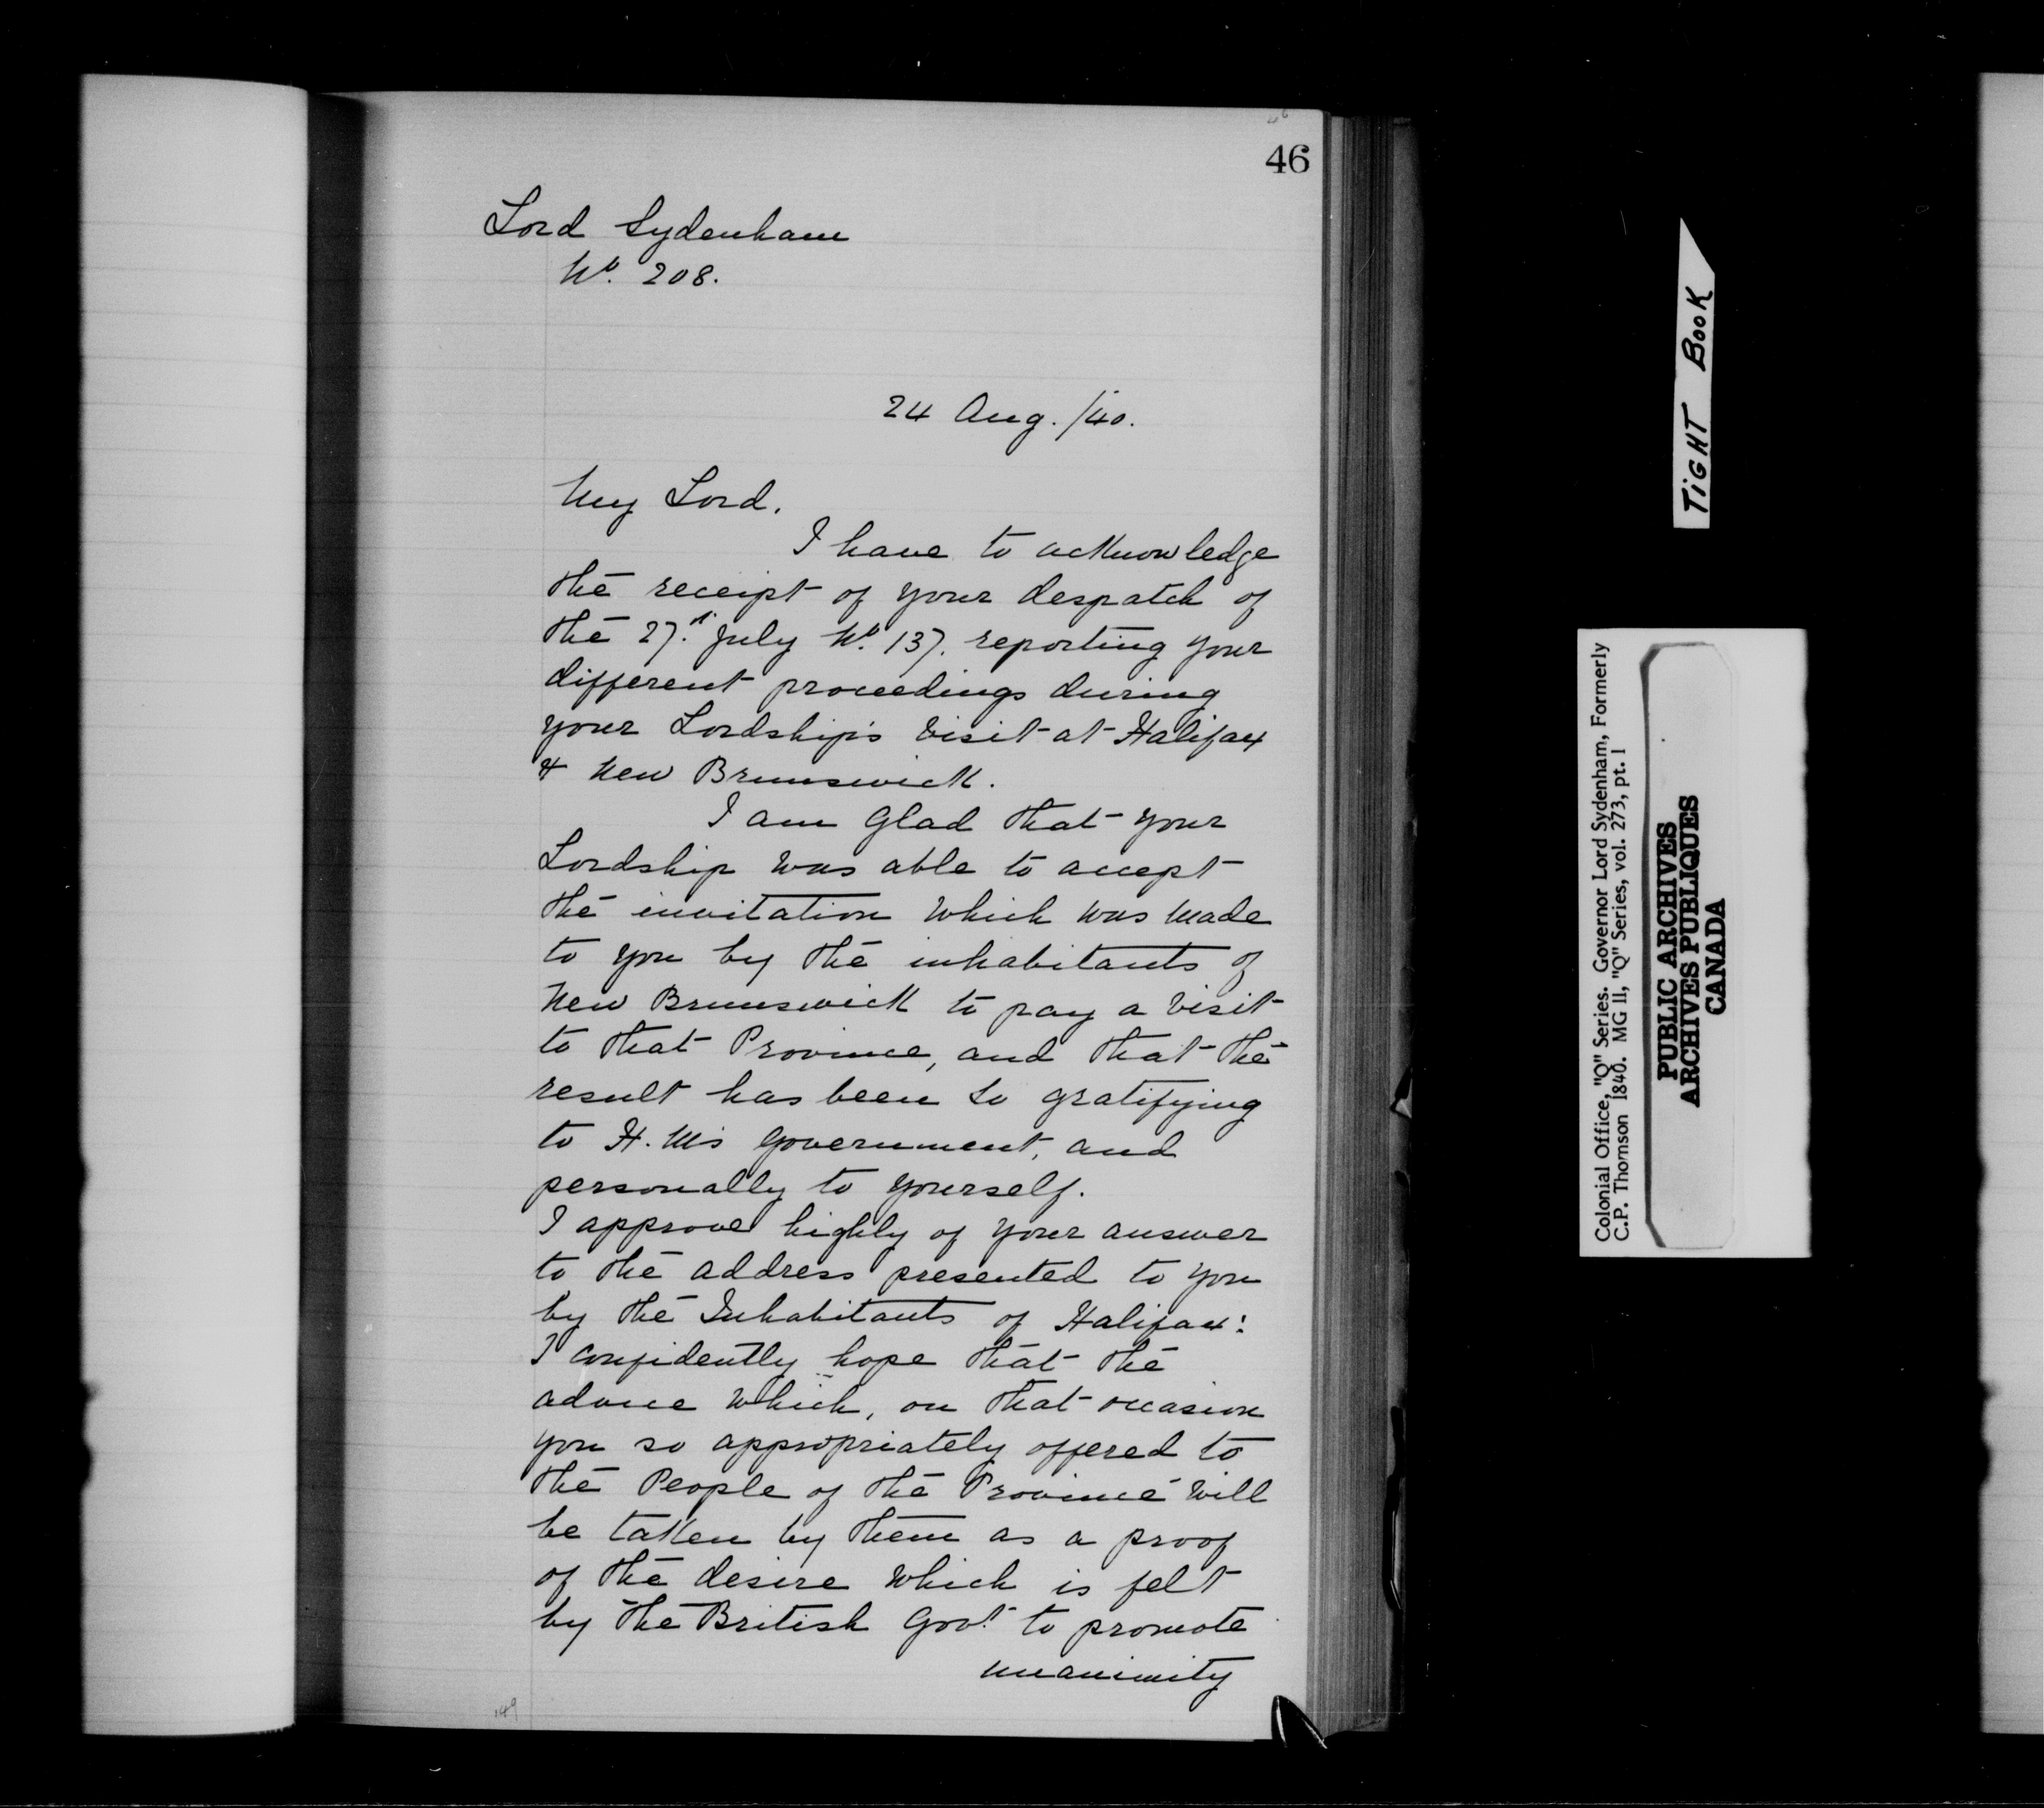 46
46
Lord Sydenham
No. 208.
24 Aug. /40.
My Lord,
I have to acknowledge
the receipt of your despatch of
the 27.th July No. 137. reporting your
different proceedings during
your Lordship's visit at Halifax
& New Brunswick.
I am glad that your
Lordship was able to accept
the invitation which was made
to you by the inhabitants of
New Brunswick to pay a visit
to that Province, and that the
result has been so gratifying
to H. M's Government, and
personally to yourself.
I approve highly of your answer
to the address presented to you
by the Inhabitants of Halifax:
I confidently hope that the
advice which, on that occasion
you so appropriately offered to
the People of the Province will
be taken by them as a proof
of the desire which is felt
by the British Govt. to promote
unanimity
149
TIGHT BOOK
Colonial Office, "Q" Series. Governor Lord Sydenham, Formerly
C.P. Thomson 1840. MG 11, "Q" Series, vol. 273, pt. 1
PUBLIC ARCHIVES
ARCHIVES PUBLIQUES
CANADA